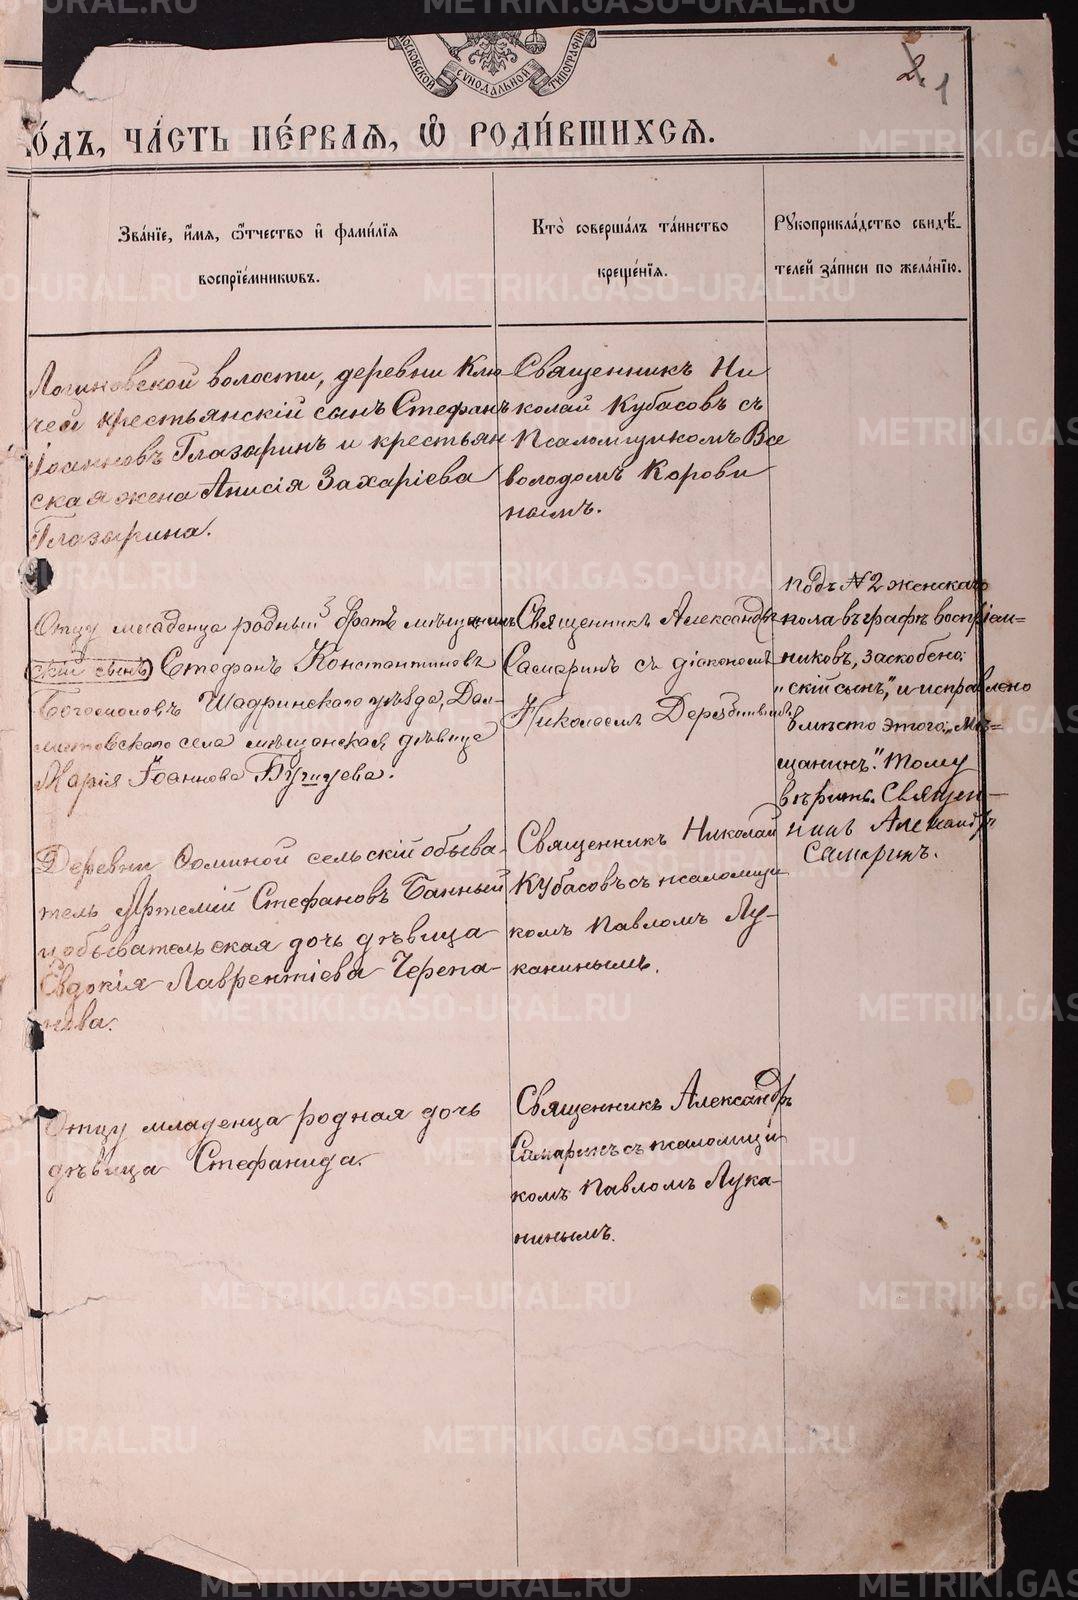 МОСКОВСКОЙ СѴНОДАЛЬНОЙ ТИПОГРАФІИ
2. 1
О́ДЪ, ЧА́СТЬ ПЕ́РВАѦ, Ѡ҆ РОДИ́ВШИХСѦ.
Зва́нїе, и҆́мѧ, ѻ҆́тчество и҆ фами́лїѧ
воспрїе́мникѡвъ.
Кто̀ соверша́лъ та́инство
креще́нїѧ.
Рꙋкоприкла́дство свидѣ́-
телей за́писи по жела́нїю.
Логиновской волости, деревни Клю
чей крестьянскій сынъ Стефанъ
Іоанновъ Глазыринъ и крестьян
ская жена Анисія Захаріева
Глазырина.
Священникъ Ни
колай Кубасовъ съ
псаломщикомъ Все
володомъ Корови
нымъ.
Отцу младенца родный братъ мѣщанинъ
скій сынъ Стефанъ Константиновъ
Богомоловъ Шадринскаго уѣзда, Дал-
матовскаго села мѣщанская дѣвица
Марія Іоаннова
Священникъ Александръ
Самаринъ съ діакономъ
Николаемъ
подъ № 2 женскаго
пола въ графѣ воспріем-
никовъ, заскоблено:
"скій сынъ", и исправлено
вмѣсто этого: "мѣ-
щанинъ". Тому
вѣрить. Священ-
никъ Александръ
Самаринъ.
Деревни Ѳоминой сельскій обыва-
тель Артемій Стефановъ Банный
и обывательская дочь дѣвица
Евдокія Лаврентіева Черепа-
нова.
Священникъ Николай
Кубасовъ съ псаломщи
комъ Павломъ Лу-
канинымъ.
Отцу младенца родная дочь
дѣвица Стефанида.
Священникъ Александръ
Самаринъ съ псаломщи
комъ Павломъ Лука-
нинымъ.
METRIKI.GASO-URAL.RU